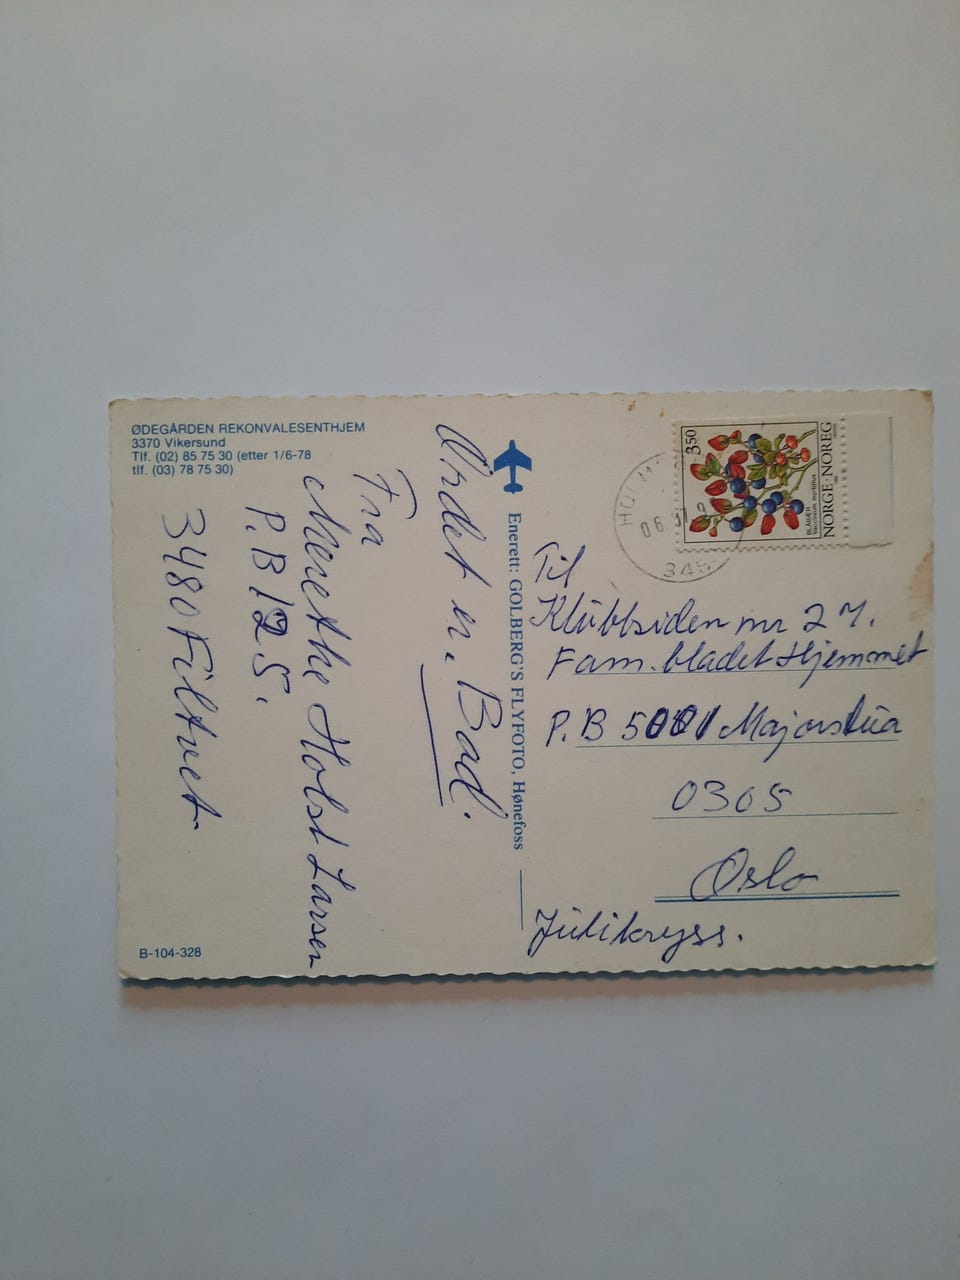 ØDEGÅRDEN REKONVALESENTHJEM
3370 Vikersund
Tlf. (02) 85 75 30 (etter 1/6-78
tlf. (03) 78 75 30)
Ordet er. Bad.
Fra
Merethe Holst Larsen
P.B 125.
3480 Filtvet
B-104-328
Enerett: GOLBERG'S FLYFOTO, Hønefoss
3.50
BLÅBÆR
Vaccinium myrtillus
NORGE·NOREG
Til
Klubbsiden nr 27.
Fam.bladet Hjemmet
P.B 5001 Majorstua
0305
Oslo
Julikryss.